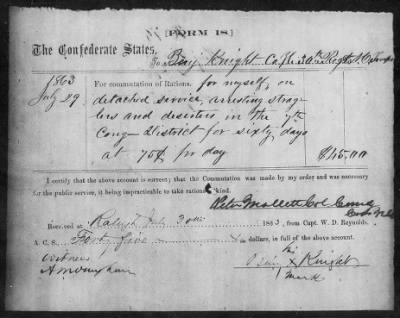 [FORM 18]
The Confederate States,
To Benj Knight Co
1863
July 29
For commutation of Rations. for myself, on
detached service, arresting strag-
lers and deserters, in the 7th
Cong District for sixty days
at 75¢ pr day
$45,00
I certify that the above account is correct; that the Commutation was made by my order and was necessary
for the public service, it being impracticable to take rations kind.
Peter Mallett Col Comg
Received at Raleigh July 30th 1863, from Capt. W. D. Reynolds,
A. C. S. Forty five in dollars, in full of the above account.
Witness
his
Benj X Knight
mark